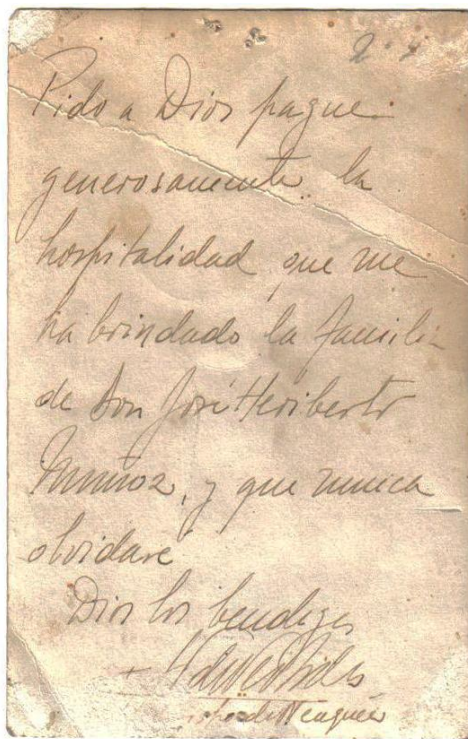 Pido a Dios pague
generosamente la
hospitalidad que me
ha brindado la familia
de Don José Heriberto
Muñoz, y que nunca
olvidaré
Dios los bendiga
+